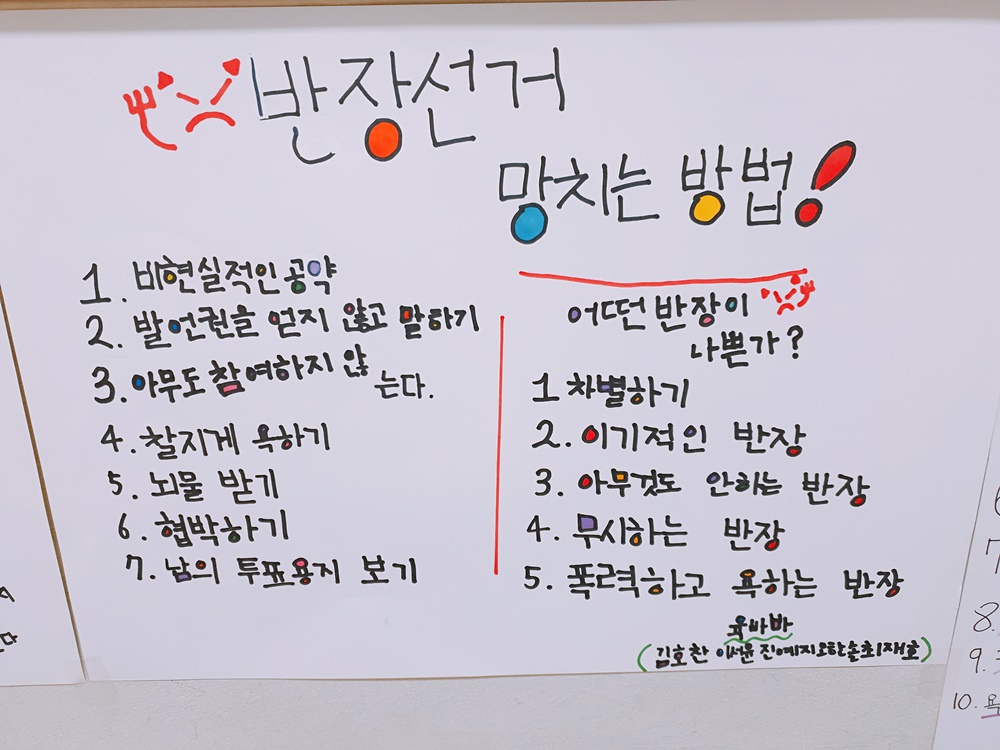 반장선거
망치는 방법!
1. 비현실적인 공약
2. 발언권을 얻지 않고 말하기
3. 아무도 참여하지 않
는다.
4. 찰지게 욕하기
5. 뇌물 받기
6. 협박하기
7. 남의 투표용지 보기
어떠던 반장이
나쁜가?
1 차별하기
2. 이기적인 반장
3. 아무것도 안하는 반장
4. 무시하는 반장
5. 폭력하고 욕하는 반장
(김호찬 이서윤 진예지 오한솔 최재호)
8.
9.
10.